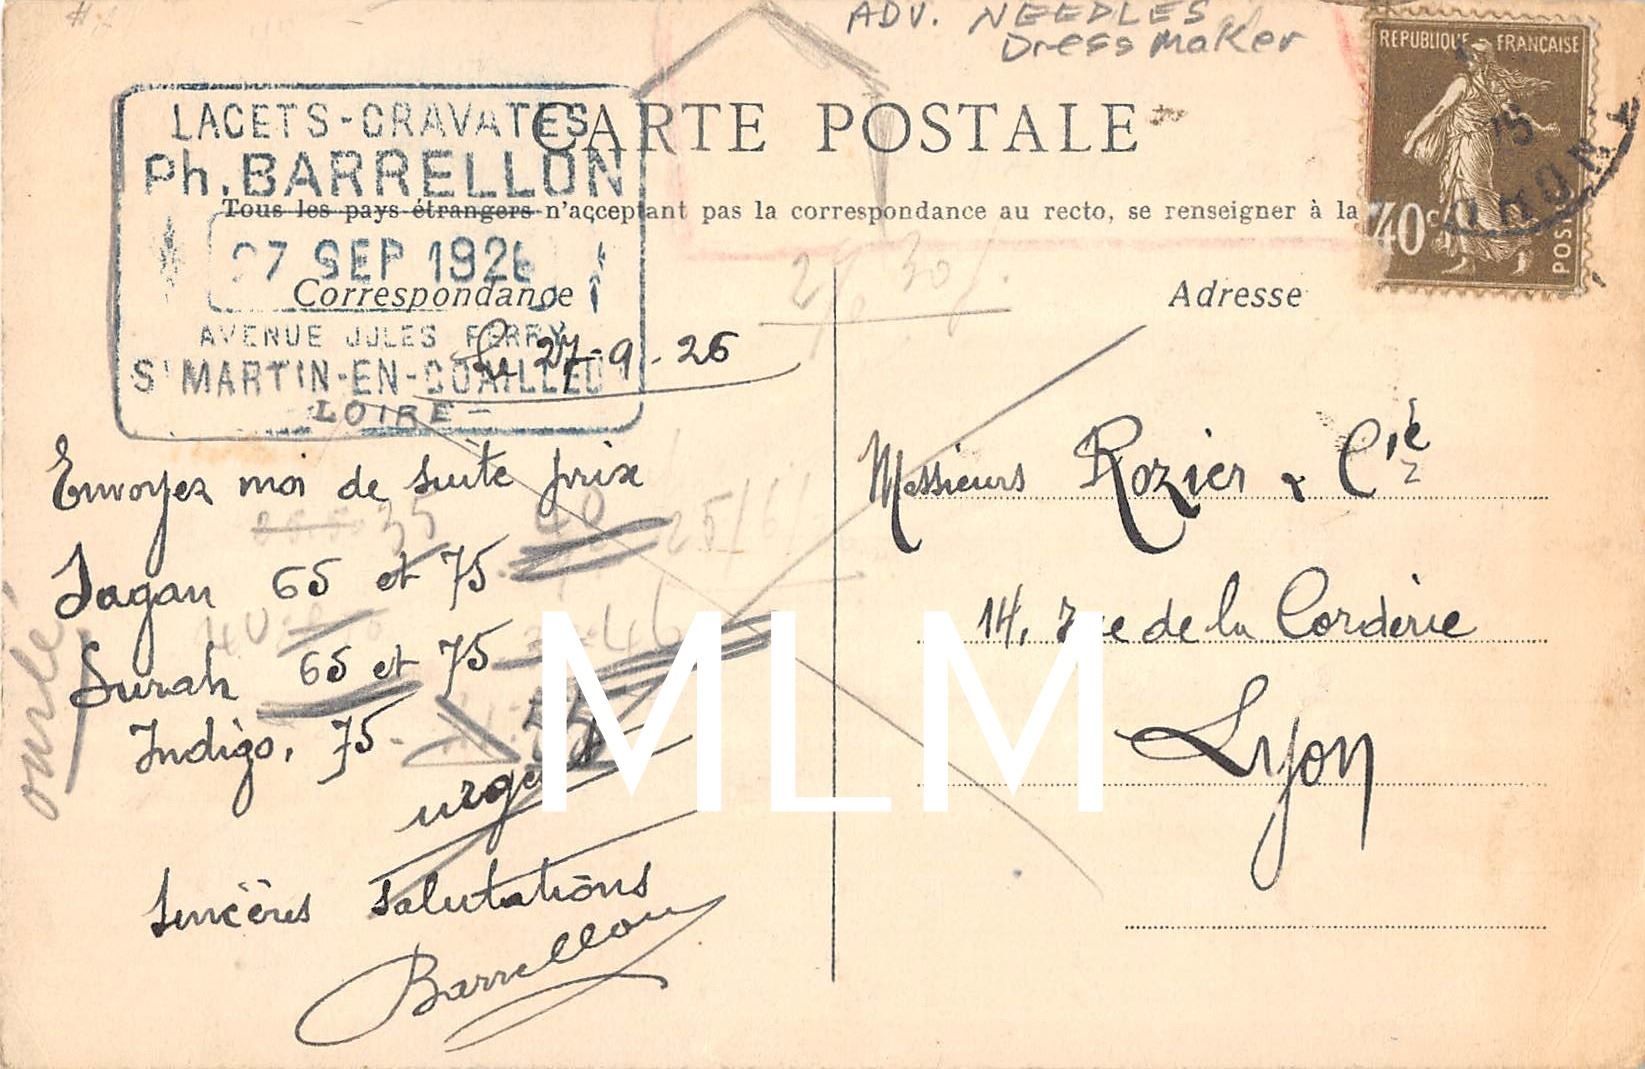 ADV. NEEDLES
Dressmaker
REPUBLIQUE FRANÇAISE
40c
POSTES
LACETS-CRAVATES
Ph. BARRELLON
27 SEP 1926
AVENUE JULES FERRY
St MARTIN-EN-COAILLEUX
LOIRE
CARTE POSTALE
Tous les pays étrangers n'acceptant pas la correspondance au recto, se renseigner à la
Correspondance
Adresse
Le 27-9-26
Envoyez moi de suite prix
35
25/6
Jagan 65 et 75
40
46
Surah 65 et 75
Indigo, 75
55
urgent
Sincères salutations
Barrellon
ourlé
Messieurs Rozier & Cie
14, Rue de la Corderie
Lyon
MLM